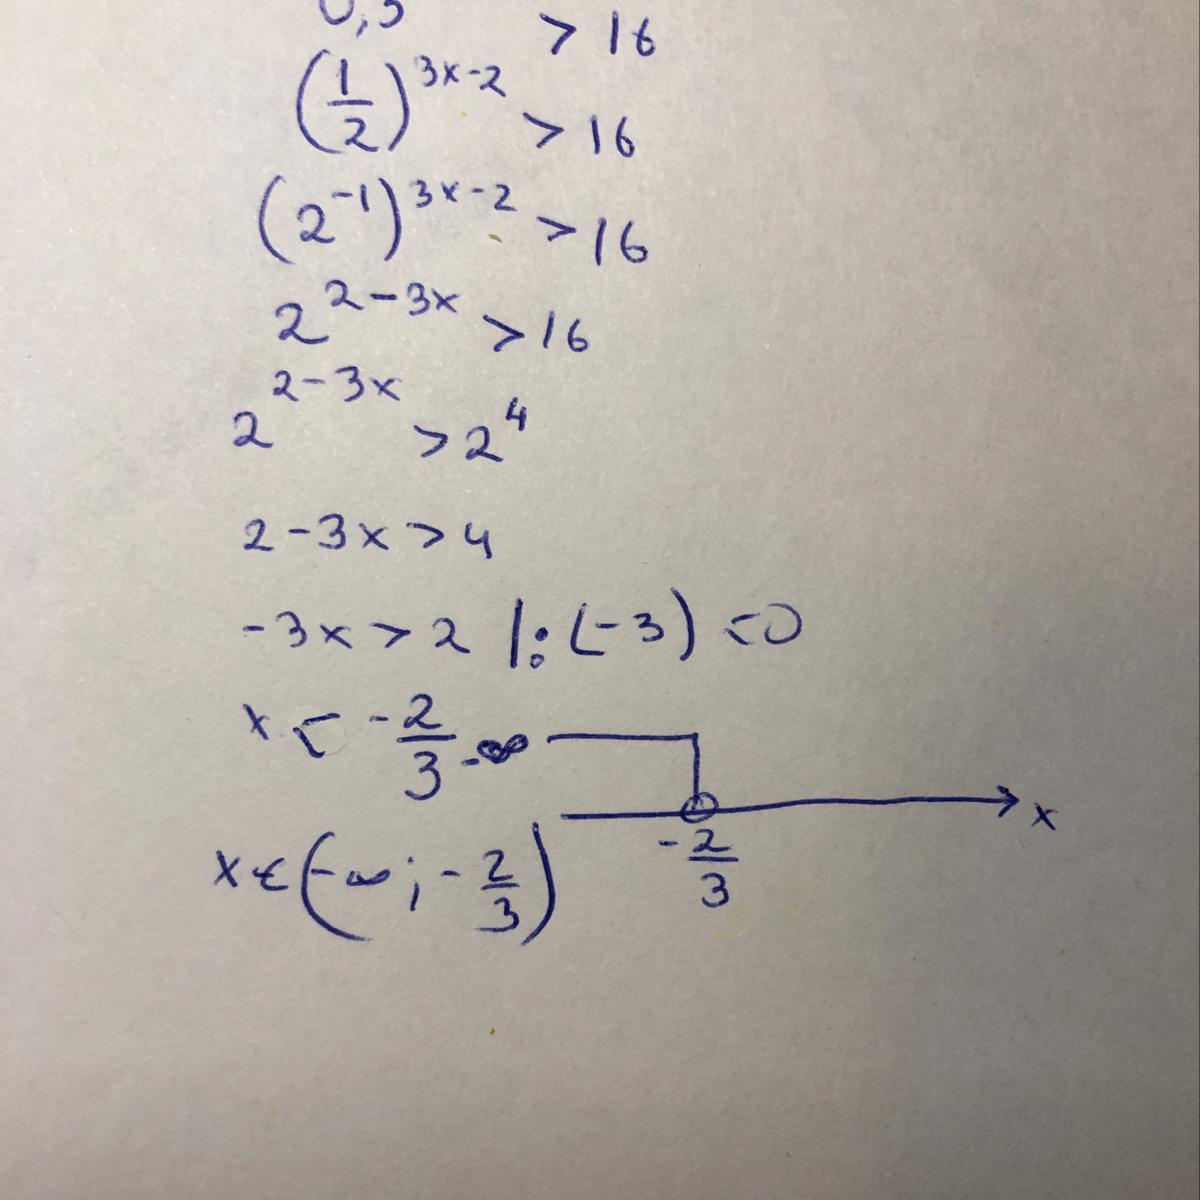 0,5 > 16
(1/2)^(3x-2) > 16
(2^(-1))^(3x-2) > 16
2^(2-3x) > 16
2^(2-3x) > 2^4
2-3x > 4
-3x > 2 |:(-3) <0
x < -2/3
-∞
x
-2/3
x∈(-∞;-2/3)